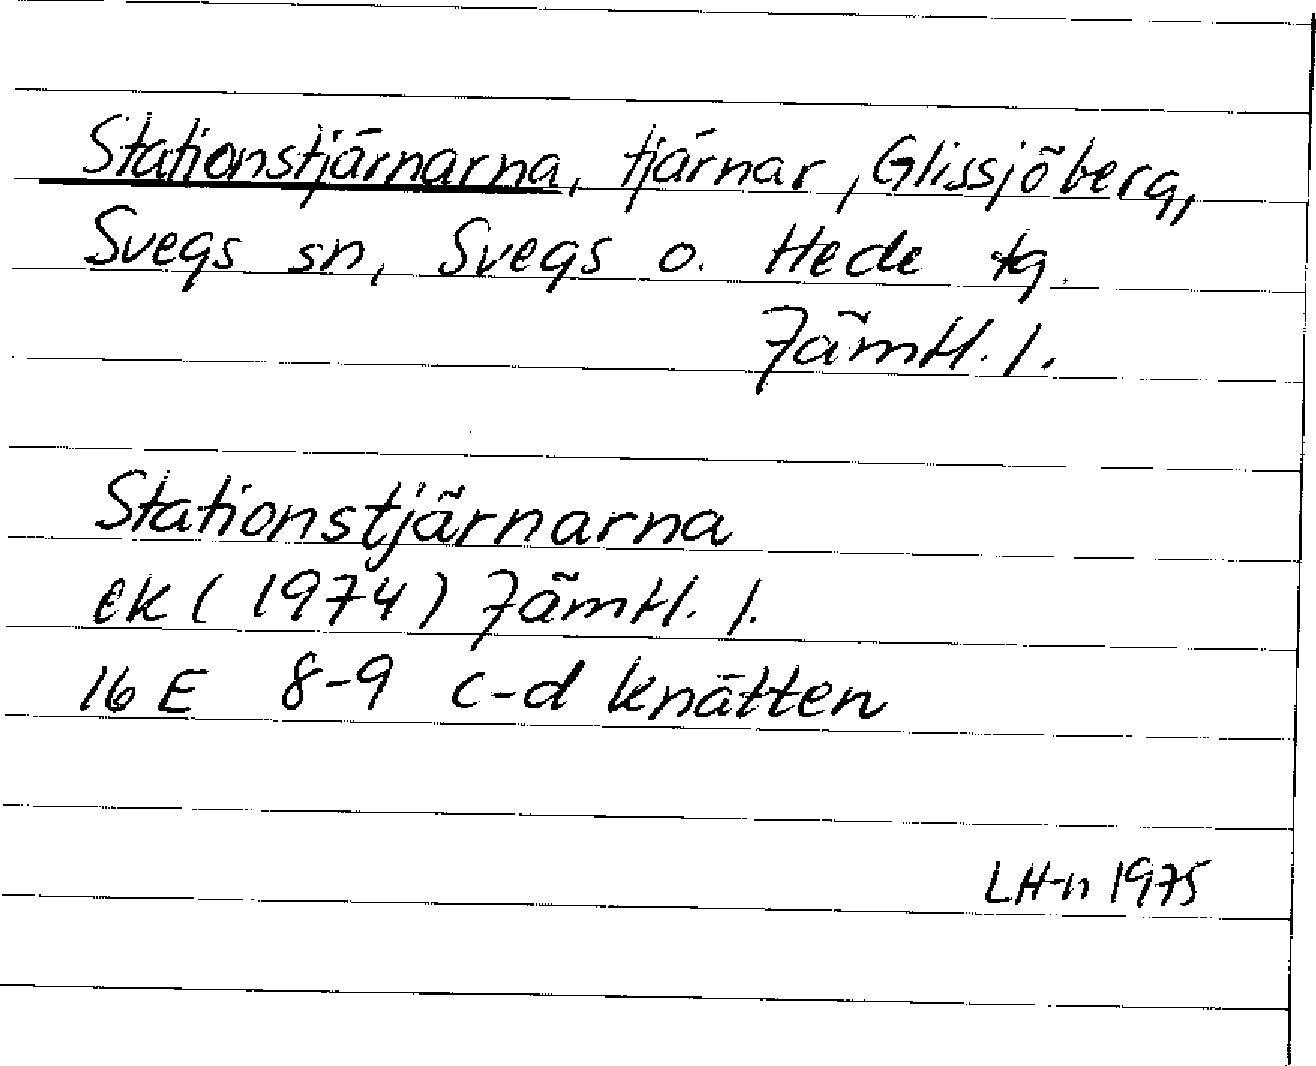 Stationstjärnarna, tjärnar, Glissjöberg,
Svegs sn, Svegs o. Hede tg.
Jämtl. l.
Stationstjärnarna
ek (1974) Jämtl. l.
16 E 8-9 c-d knätten
LH-n 1975